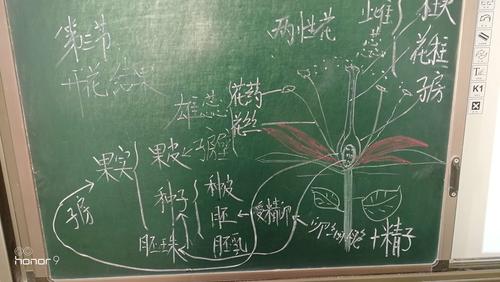 第三节
开花结果
两性花
雌蕊
花柱
子房
雄蕊
花药
花丝
果实
果皮
子房壁
种子
种皮
胚
受精卵
卵细胞
+精子
子房
胚珠
胚乳
honor 9
K1